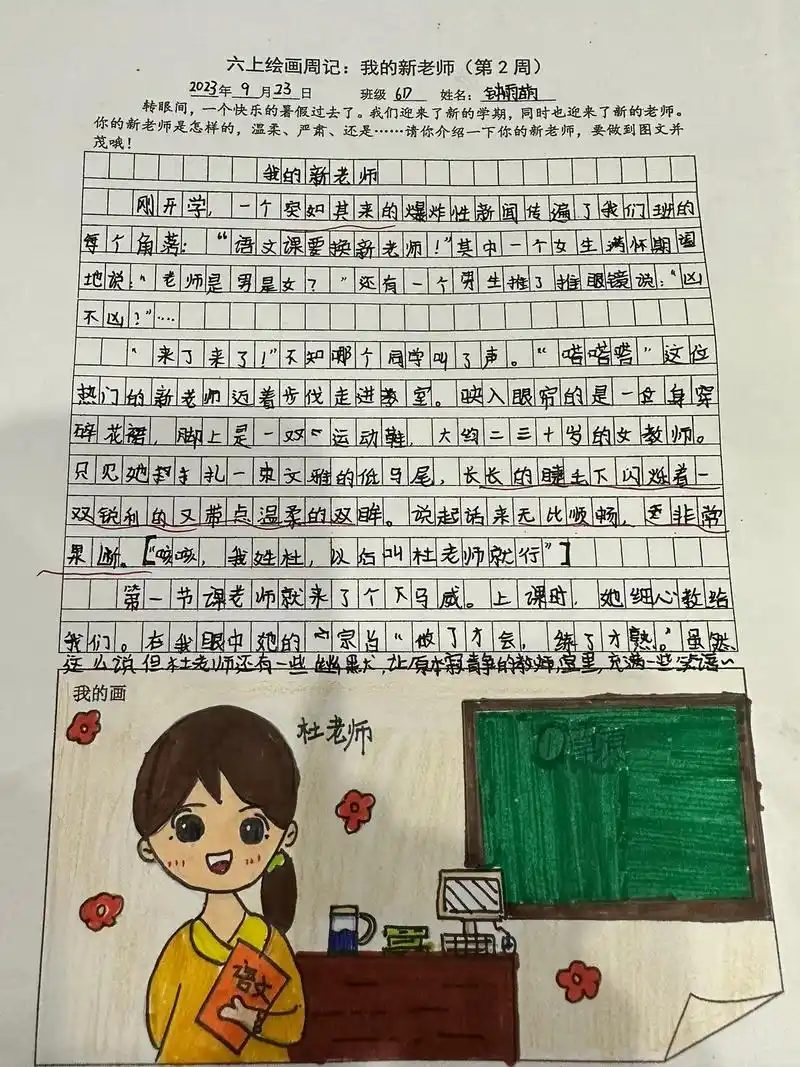 六上绘画周记：我的新老师（第2周）
2023年 9 月 23 日 班级 6D 姓名：钟雨萌
转眼间，一个快乐的暑假过去了。我们迎来了新的学期，同时也迎来了新的老师。
你的新老师是怎样的，温柔、严肃、还是……请你介绍一下你的新老师，要做到图文并
茂哦！
我的新老师
刚开学，一个突如其来的爆炸性新闻传遍了我们班的
每个角落：“语文课要换新老师！”其中一个女生满怀期望
地说：“老师是男是女？”还有一个男生推了推眼镜说：“凶
不凶？”……
“来了来了！”不知哪个同学叫了声。“嗒嗒嗒”这位
热门的新老师迈着步伐走进教室。映入眼帘的是一位身穿
碎花裙，脚上是一双运动鞋，大约二三十岁的女教师。
只见她扎一束文雅的低马尾，长长的睫毛下闪烁着一
双锐利的又带点温柔的双眸。说起话来无比顺畅，还非常
果断。[“咳咳，我姓杜，以后叫杜老师就行”]
第一节课老师就来了个下马威。上课时，她细心教给
我们。在我眼中她的宗旨“做了才会，练了才熟。”虽然
这么说但杜老师还有一些幽默，让原本寂静的教师室里，充满一些笑语~
我的画
杜老师
语文